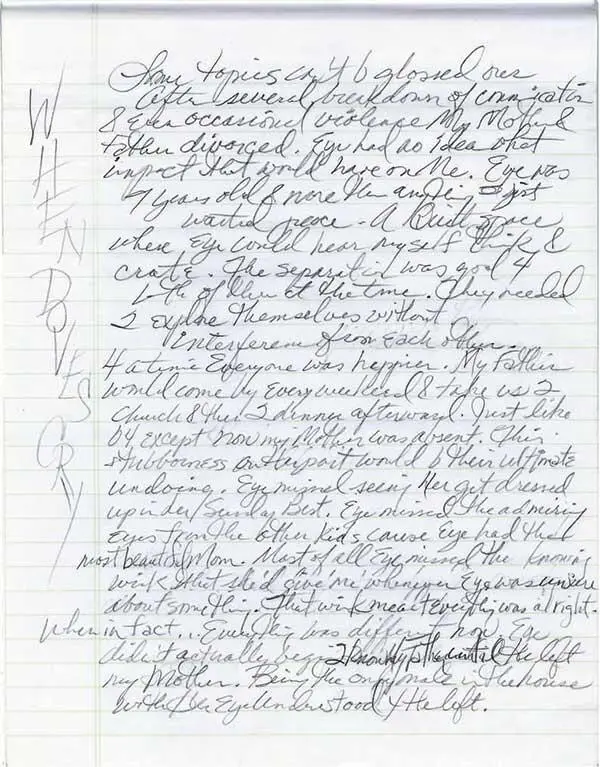 WHEN DOVES CRY
Some topics can't b glossed over
After several breakdown of
& even occasional violence My Mother &
Father divorced. Eye had no idea what
impact that would have on Me. Eye was
7 years old & more than anything I just
wanted peace - A Quiet space
where Eye could hear myself think &
create. The separation was good 4
both of them at the time. They needed
2 explore themselves without
interference from each other.
4 a time Everyone was happier. My Father
would come by every weekend & take us 2
church & then 2 dinner afterward. Just like
b4 except now my Mother was absent. This
stubborness on her part would b their ultimate
undoing. Eye missed seeing Her get dressed
up in her Sunday Best. Eye missed the admiring
eyes from the other kids cause Eye had the
most beautiful Mom. Most of all Eye missed the knowing
wink that she'd give me whenever Eye was unsure
about something. That wink meant everything was alright.
When in fact... Everything was different now. Eye
didn't actually begin 2 know my father until he left
my Mother. Being the only male in the house
with her Eye understood Y he left.